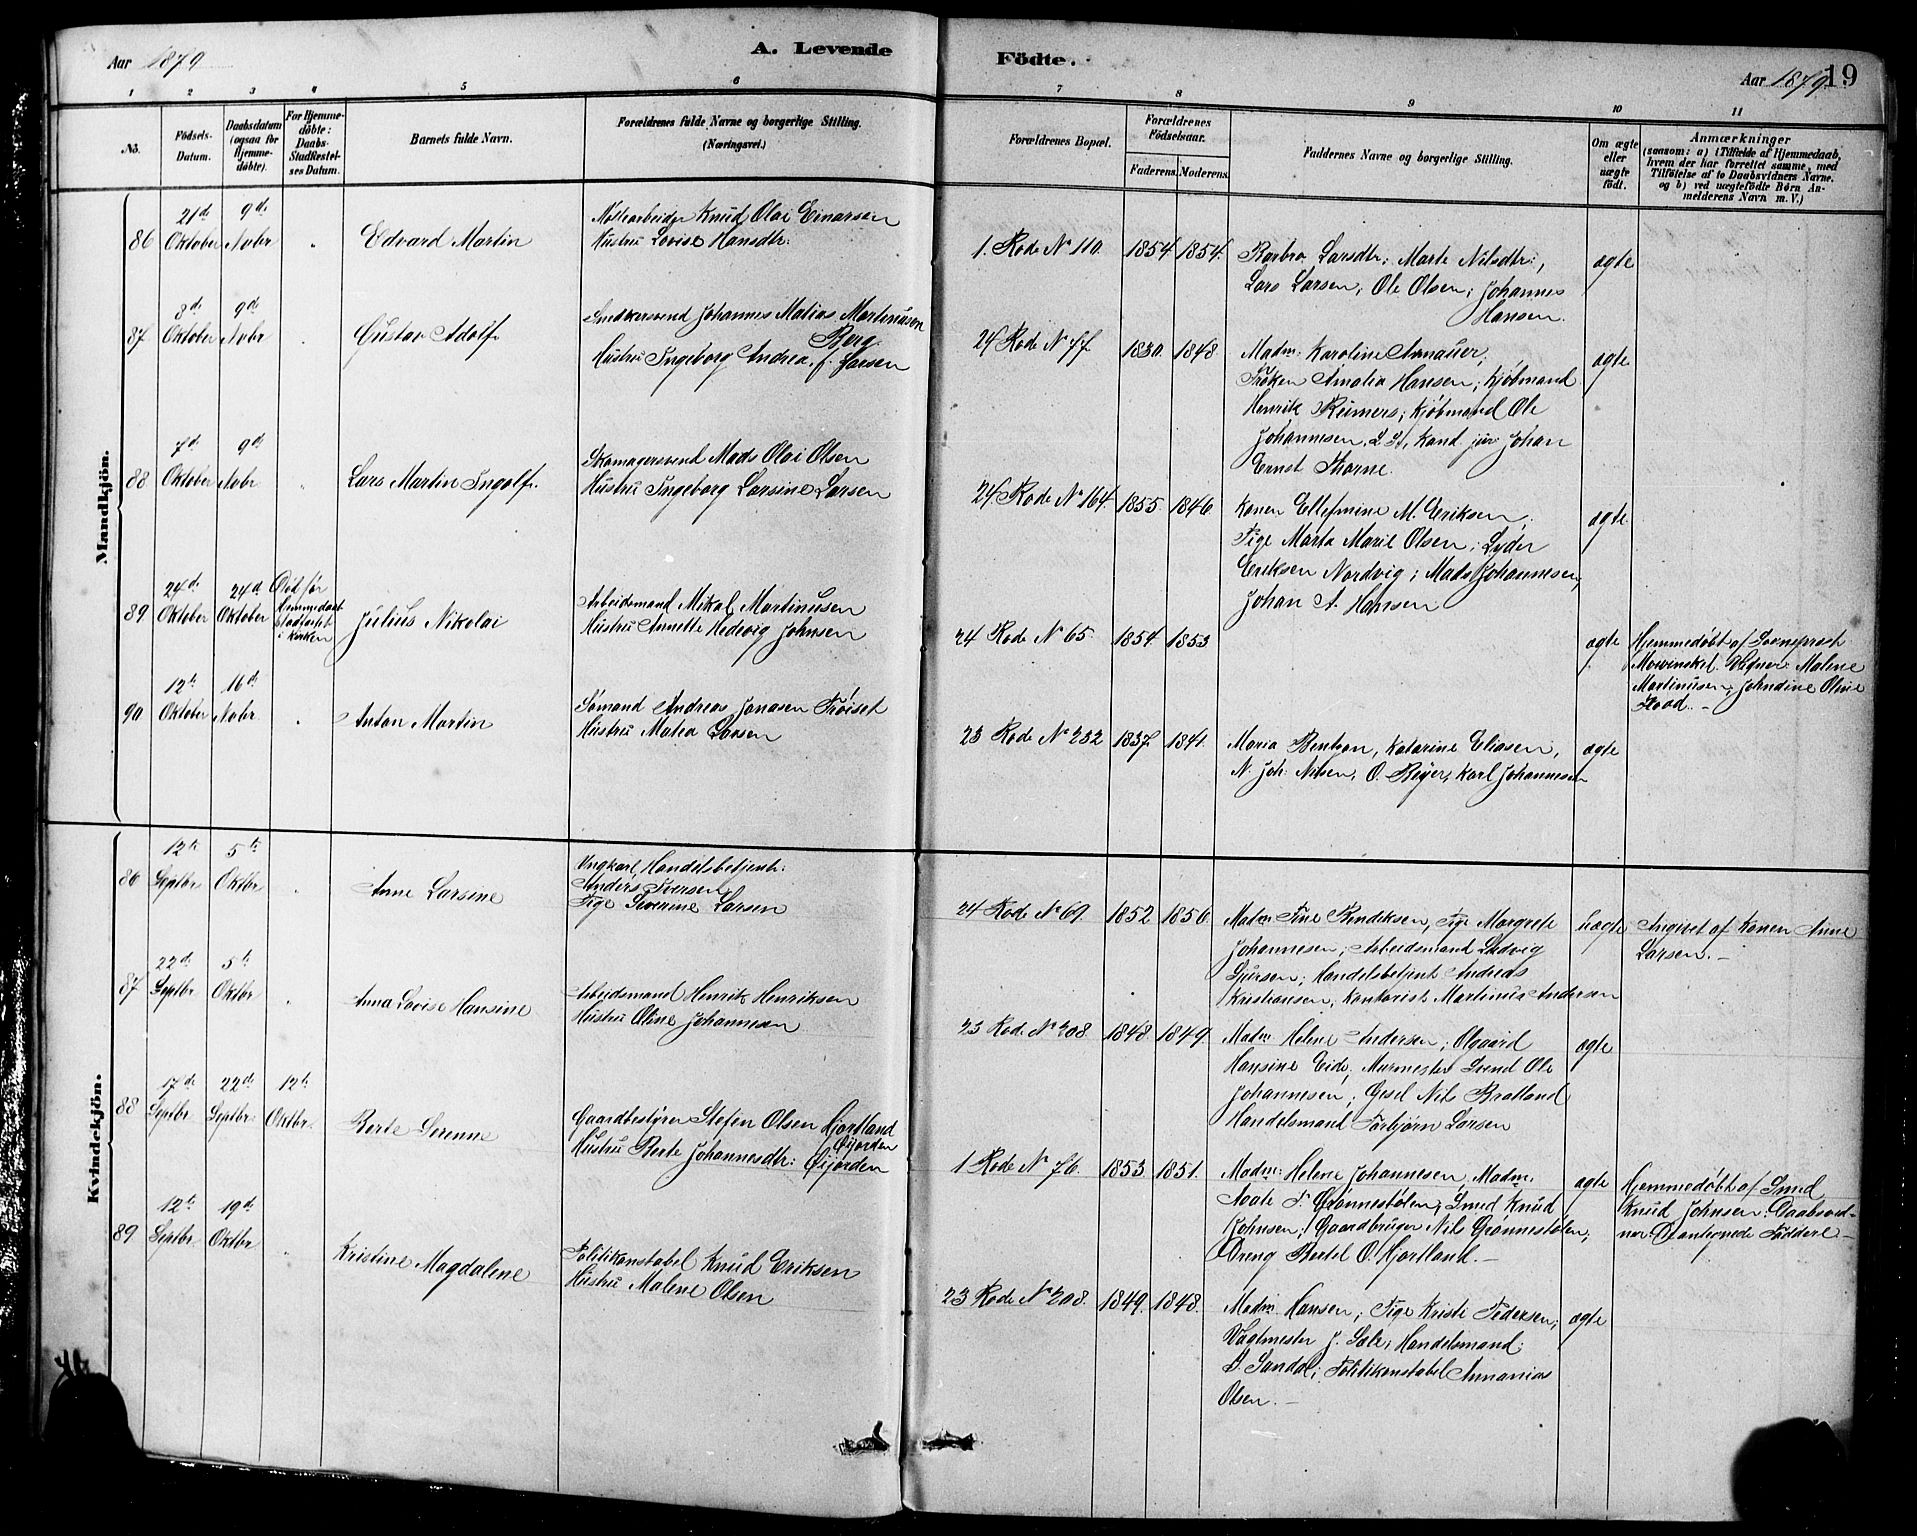 Aar 1879
A. Levende
Födte.
Aar 1879.
19
1 2 3 4 5 6 7 8 9 10 11
No.
Födsels-
Datum.
Daabsdatum
(ogsaa for
Hjemme-
döbte).
For Hjemme-
döbte:
Daabs-
Stadfæstel-
ses Datum.
Barnets fulde Navn.
Forældrenes fulde Navne og borgerlige Stilling.
(Næringsvei.)
Forældrenes Bopæl.
Forældrenes
Födselsaar.
Faderens. Moderens.
Faddernes Navne og borgerlige Stilling.
Om ægte
eller
uægte
födt.
Anmærkninger
(saasom: a) i Tilfælde af Hjemmedaab,
hvem der har forrettet samme, med
Tilföielse af to Daabsvidners Navne.
og b) ved uægtefödte Börn An-
melderens Navn m. V.)
Mandkjön.
86
21d
Oktober
9d
Novbr
Edvard Martin
Knud Olai Einarsen
Hustru Lovise Hansdtr:
1. Rode No 110.
1854. 1854.
Barbra Larsdtr; Marte Nilsdtr;
Lars Larsen; Ole Olsen; Johannes
Hansen.
ægte
87
3d
Oktober
9d
Novbr
Gustav Adolf
Snedkersvend Johannes Matias Martinusen
Berg.
Hustru Ingeborg Andrea f. Jansen
24 Rode No 77.
1830. 1848.
Madm: Karoline
Frøken Amalia Hansen; Kjøbmand
Henrik Reimers; Kjøbmand Ole
Johannesen, Kand. jur Johan
Ernst Thorne.
ægte
88
7d
Oktober
9d
Novbr
Lars Martin Ingolf
Skomagersvend Mads Olai Olsen
Hustru Ingeborg Larsine Larsen
24. Rode No 164.
1855. 1846.
Konen Ellefmine M. Eriksen,
Pige Marta Marie Olsen; Lyder
Eriksen Nordvig; Mads Johannesen,
Johan A. Hansen
ægte
89
24d
Oktober
24d
Oktober
Død før
Hjemmedaab
stadfæstet
i Kirken
Julius Nikolai
Arbeidsmand Mikal Martinusen
Hustru Annette Hedevig Johnsen
24 Rode No 65.
1854. 1853
ægte
Hjemmedøbt af Sogneprest
Mowinckel. Malene
Martinusen, Johndine Oline
Flood. –
90
12te
Oktober
16d
Novbr
Anton Martin
Sømand Andreas Jonasen Frøiset
Hustru Matea
23 Rode No 232
1837. 1841.
Maria Bentzon, Katarine Eliasen,
N. Joh: Nilsen, O. Beyer, Karl Johannesen
ægte
Kvindekjön.
86
12te
Septbr
5te
Oktbr
Anne Larsine
Ungkarl, Handelsbetjent:
Anders Iversen
Pige Severine Larsen
24 Rode No 69.
1852. 1856.
Madm Tine Bendiksen, Pige Margrete
Johannesen; Arbeidsmand Ludvig
Handelsbetjent Andreas
Kristiansen, Kontorist Martinus Andersen
Uægte
Angivet af Konen Anne
Larsen. –
87
22d
Septbr
5te
Oktbr
Anna Lovise Hansine
Arbeidsmand Henrik Henriksen
Hustru Oline Johannesen
23 Rode No 208
1848. 1849.
Madm Helene Andersen; Olgaard
Hansine Eide; Murmester Svend Ole
Johannesen; Gesel Nils Bratland
Handelsmand Torbjørn Larsen
ægte
88
17d
Septbr
22d
Septbr.
12te
Oktbr.
Berte Serenne
Gaardbestyrer Stefen Olsen Hjortland
Øijorden
Hustru Berte Johannesdtr: Øijorden
1 Rode No 76.
1853. 1851.
Madm: Helene Johannesen, Madm:
Aaate Grønnestølen, Smed Knud
Johnsen, Gaardbruger Nils Grønnestølen,
Dreng Bertel O. Hjortland. –
ægte
Hjemmedøbt af Smed
Knud Johnsen. Daabsvid-
ner Faddere –
89
12te
Septbr.
19d
Oktbr
Kristine Magdalene
Politikonstabel Knud Eriksen
Hustru Malene Olsen
23 Rode No 208.
1849. 1848.
Madm. Hansen; Pige Kristi Pedersen;
Vagtmester J. Sæle; Handelsmand
Sandal; Politikonstabel Annanias
Olsen. –
ægte